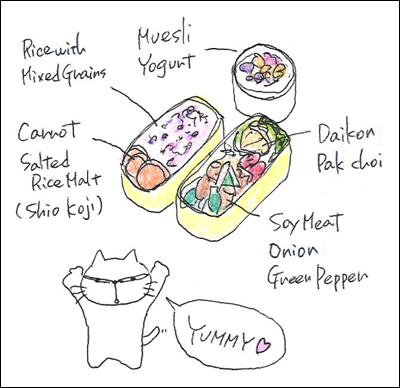 Rice with
Mixed Grains
Muesli
Yogurt
Carrot
Salted
Rice Malt
(Shio Koji)
Daikon
Pak choi
Soy Meat
Onion
Green Pepper
YUMMY